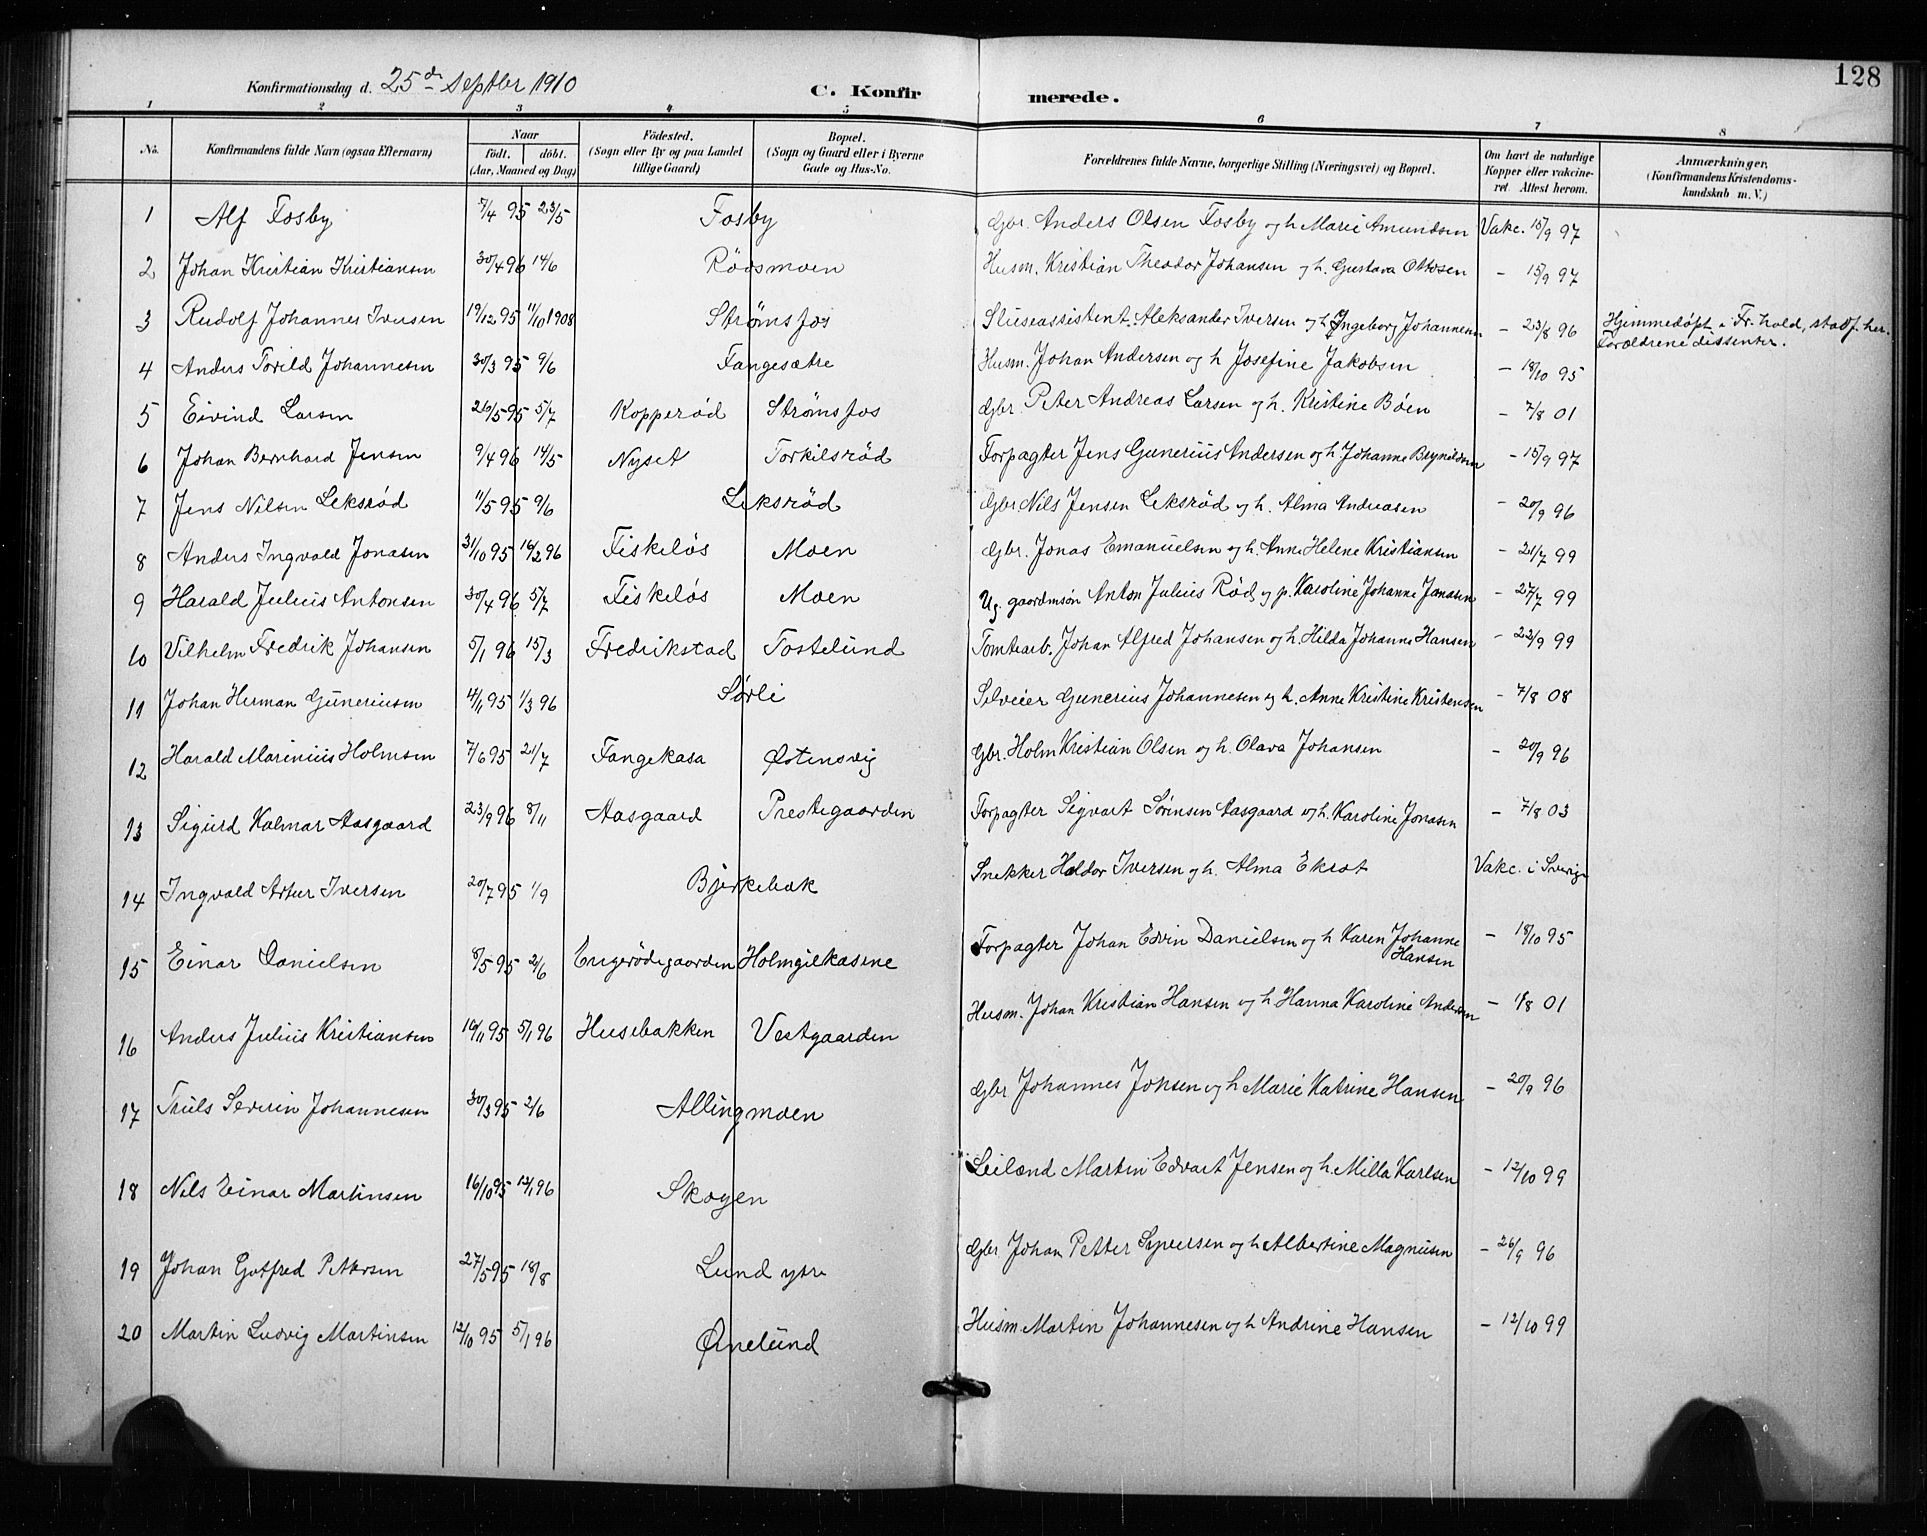 128
Konfirmationsdag d. 25de Septbr 1910 C. Konfirmerede.
1 2 3 4 5 6 7 8
No. Konfirmandens fulde Navn (ogsaa Efternavn) Naar født. døbt. (Aar, Maaned og Dag) Födested. (Sogn eller By og paa Landet tillige Gaard) Bopæl. (Sogn og Gaard eller i Byerne Gade og Hus-No. Forældrenes fulde Navne, borgerlige Stilling (Næringsvei) og Bopæl. Om havt de naturlige Kopper eller vakcineret. Attest herom. Anmærkninger. (Konfirmandens Kristendomskundskab m. V.)
1 Alf Fosby 7/4 95 23/5 Fosby Gbr. Anders Olsen Fosby og h. Marie Amundsen Vakc. 15/9 97
2 Johan Kristian Kristiansen 30/4 96 14/6 Rødsmoen Husm. Kristian Theodor Johansen og h. Gustava Ottosen - 15/9 97
3 Rudolf Johannes Iversen 19/12 95 11/10 1908 Strømsfos Sluseassistent Aleksander Iversen og h. Ingeborg Johannesen - 23/8 96 Hjemmedøpt i Fr.hald, stadf. her. Forældrene dissenter.
4 Anders Torild Johannesen 30/3 95 9/6 Fangesætre Husm. Johan Andersen og h Josefine Jakobsen - 18/10 95
5 Eivind Larsen 26/5 95 5/7 Kopperød Strømsfos Gbr. Peter Andreas Larsen og h. Kristine Bøen - 7/8 01
6 Johan Bernhard Jensen 9/4 96 14/5 Nyset Torkilsrød Forpagter Jens Gunerius Andersen og h Johanne Brynildsen - 15/9 97
7 Jens Nilsen Leksrød 11/5 95 9/6 Leksrød Gbr Nils Jensen Leksrød og h. Alma Andreasen - 20/9 96
8 Anders Ingvald Jonasen 31/10 95 16/2 96 Fiskeløs Moen Gbr. Jonas Emanuelsen og h. Anne Helene Kristiansen - 21/7 99
9 Harald Julius Antonsen 30/4 96 5/7 Fiskeløs Moen Ug. gaardmsøn Anton Julius Rød og p. Karoline Johanne Jonasen - 27/7 99
10 Vilhelm Fredrik Johansen 5/1 96 15/3 Fredrikstad Tostelund Tomtearb. Johan Alfred Johansen og h. Hilda Johanne Hansen - 22/9 99
11 Johan Herman Guneriusen 4/11 95 1/3 96 Sørli Selveier Gunerius Johannesen og h. Anne Kristine Kristensen - 7/8 08
12 Harald Marinius Holmsen 7/6 95 21/7 Fangekasa Østensvig Gbr. Holm Kristian Olsen og h. Olava Johansen - 20/9 96
13 Sigurd Kalmar Aasgaard 23/9 96 8/11 Aasgaard Prestegaarden Forpagter Sigvart Sørensen Aasgaard og h. Karoline Jonasen - 7/8 03
14 Ingvald Artur Iversen 20/7 95 1/9 Bjerkebæk Snekker Haldor Iversen og h. Alma Ekrot Vakc. i Sverige
15 Einar Danielsen 8/5 95 2/6 Engerødegaarden Holmgilkasene Forpagter Johan Edvin Danielsen og h Karen Johanne Hansen - 18/10 95
16 Anders Julius Kristiansen 16/11 95 5/1 96 Husebakken Vestgaarden Husm. Johan Kristian Hansen og h Hanna Karoline Andersen - 1/8 01
17 Truls Severin Johannesen 30/3 95 2/6 Allingmoen Gbr Johannes Jonsen og h Marie Katrine Hansen - 20/9 96
18 Nils Einar Martinsen 16/10 95 12/1 96 Skogen Leilænd Martin Edvart Jensen og h. Milla Karlsen - 12/10 99
19 Johan Gotfred Pettersen 27/5 95 18/8 Lund ytre Gbr Johan Petter Syversen og h Albertine Magnusen - 26/9 96
20 Martin Ludvig Martinsen 12/10 95 5/1 96 Ørnelund Husm Martin Johannesen og h Andrine Hansen - 12/10 99